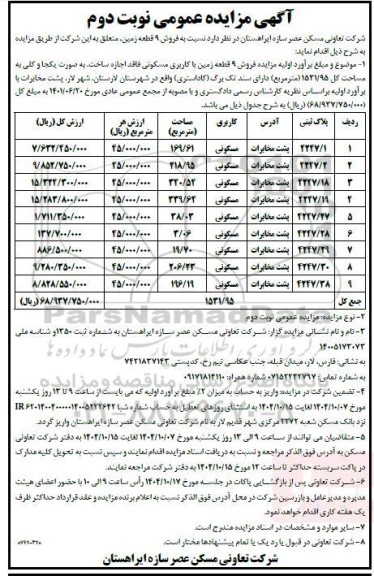 آگهی مزایده عمومی نوبت دوم
شرکت تعاونی مسکن عصر سازه ایراهستان در نظر دارد نسبت به فروش ۹ قطعه زمین، متعلق به این شرکت از طریق مزایده
به شرح ذیل اقدام نماید:
۱- موضوع و مبلغ برآورد اولیه مزایده فروش ۹ قطعه زمین با کاربری مسکونی فاقد اجازه ساخت، به صورت یکجا و کلی به
مساحت کل ۱۵۳۱/۹۵ (مترمربع) دارای سند تک برگ (کاداستری) واقع در شهرستان لارستان، شهر لار، پشت مخابرات با
برآورد اولیه براساس نظریه کارشناس رسمی دادگستری و با مصوبه از مجمع عمومی عادی مورخ ۱۴۰۱/۰۶/۲۰ به مبلغ کل
(۶۸/۹۳۷/۷۵۰/۰۰۰) (ریال) به شرح جدول ذیل می باشد.
ردیف پلاک ثبتی آدرس کاربری مساحت (مترمربع) ارزش هر مترمربع (ریال) ارزش کل (ریال)
۱ ۴۲۴۷/۱ پشت مخابرات مسکونی ۱۶۹/۶۱ ۴۵/۰۰۰/۰۰۰ ۷/۶۳۲/۴۵۰/۰۰۰
۲ ۴۲۴۷/۲ پشت مخابرات مسکونی ۲۱۸/۹۵ ۴۵/۰۰۰/۰۰۰ ۹/۸۵۲/۷۵۰/۰۰۰
۳ ۴۲۴۷/۱۸ پشت مخابرات مسکونی ۳۴۰/۵۲ ۴۵/۰۰۰/۰۰۰
۴ ۴۲۴۷/۱۹ پشت مخابرات مسکونی ۳۳۹/۶۴ ۴۵/۰۰۰/۰۰۰ ۱۵/۲۸۳/۸۰۰/۰۰۰
۵ ۴۲۴۷/۲۷ پشت مخابرات مسکونی ۳۸/۰۳ ۴۵/۰۰۰/۰۰۰ ۱/۷۱۱/۳۵۰/۰۰۰
۶ ۴۲۴۷/۲۸ پشت مخابرات مسکونی ۳/۰۶ ۴۵/۰۰۰/۰۰۰ ۱۳۷/۷۰۰/۰۰۰
۷ ۴۲۴۷/۲۹ پشت مخابرات مسکونی ۱۹/۷۰ ۴۵/۰۰۰/۰۰۰ ۸۸۶/۵۰۰/۰۰۰
۸ ۴۲۴۷/۳۰ پشت مخابرات مسکونی ۲۰۶/۲۳ ۴۵/۰۰۰/۰۰۰ ۹/۲۸۰/۳۵۰/۰۰۰
۹ ۴۲۴۷/۳۸ پشت مخابرات مسکونی ۱۹۶/۱۹ ۴۵/۰۰۰/۰۰۰ ۸/۸۲۸/۵۵۰/۰۰۰
جمع کل ۱۵۳۱/۹۵ ۶۸/۹۳۷/۷۵۰/۰۰۰ (ریال)
۲- نوع مزایده: مزایده عمومی نوبت دوم
۳- نام و نام نشانی مزایده گزار: شرکت تعاونی مسکن عصر سازه ایراهستان به شماره ثبت ۱۳۵۰ و شناسه ملی
۱۴۰۰۵۱۷۳۰۷۳
به نشانی: فارس، لار، میدان قبله، جنب عکاسی نیم رخ، کدپستی ۷۴۳۱۸۳۷۱۴۳
به شماره تماس: ۰۷۱۵۲۲۴۲۹۷ شماره همراه: ۰۹۱۷۱۸۱۴۱۱۰
۴- تضمین شرکت در مزایده: واریز به حساب به میزان ۲٪ مبلغ برآورد اولیه که می بایست از ساعت ۹ تا ۱۳ روز یکشنبه
مورخ ۱۴۰۴/۱۰/۰۷ لغایت ۱۴۰۴/۱۰/۱۵ به استثنای روزهای تعطیل به حساب شماره شبا
نزد بانک مسکن شعبه ۲۲۷۲ مرکزی شهر قدیم لار به نام شرکت تعاونی مسکن عصر سازه ایراهستان واریز گردد.
۵- متقاضیان می توانند از ساعت ۹ الی ۱۳ روز یکشنبه مورخ ۱۴۰۴/۱۰/۰۷ لغایت ۱۴۰۴/۱۰/۱۵ به دفتر شرکت تعاونی
مسکن به آدرس فوق الذکر مراجعه و نسبت به دریافت اسناد مزایده اقدام نمایند و سپس نسبت به تحویل کلیه مدارک
در پاکت سربسته حداکثر تا ساعت ۱۲ مورخ ۱۴۰۴/۱۰/۱۵ به دفتر شرکت مراجعه نمایند.
۶- شرکت تعاونی پس از بازگشایی پاکات در جلسه مورخ ۱۴۰۴/۱۰/۱۷ رأس ساعت ۹ الی ۱۰ با حضور اعضای هیئت
مدیره و مدیرعامل و بازرسین شرکت در محل آدرس فوق الذکر نسبت به اعلام برنده مزایده و عقد قرارداد حداکثر ظرف
یک هفته کاری اقدام خواهد نمود.
۷- سایر موارد و مشخصات در اسناد مزایده مندرج است.
۸- شرکت تعاونی در قبول یا رد یک یا تمام پیشنهادها مختار است.
شرکت تعاونی مسکن عصر سازه ایراهستان